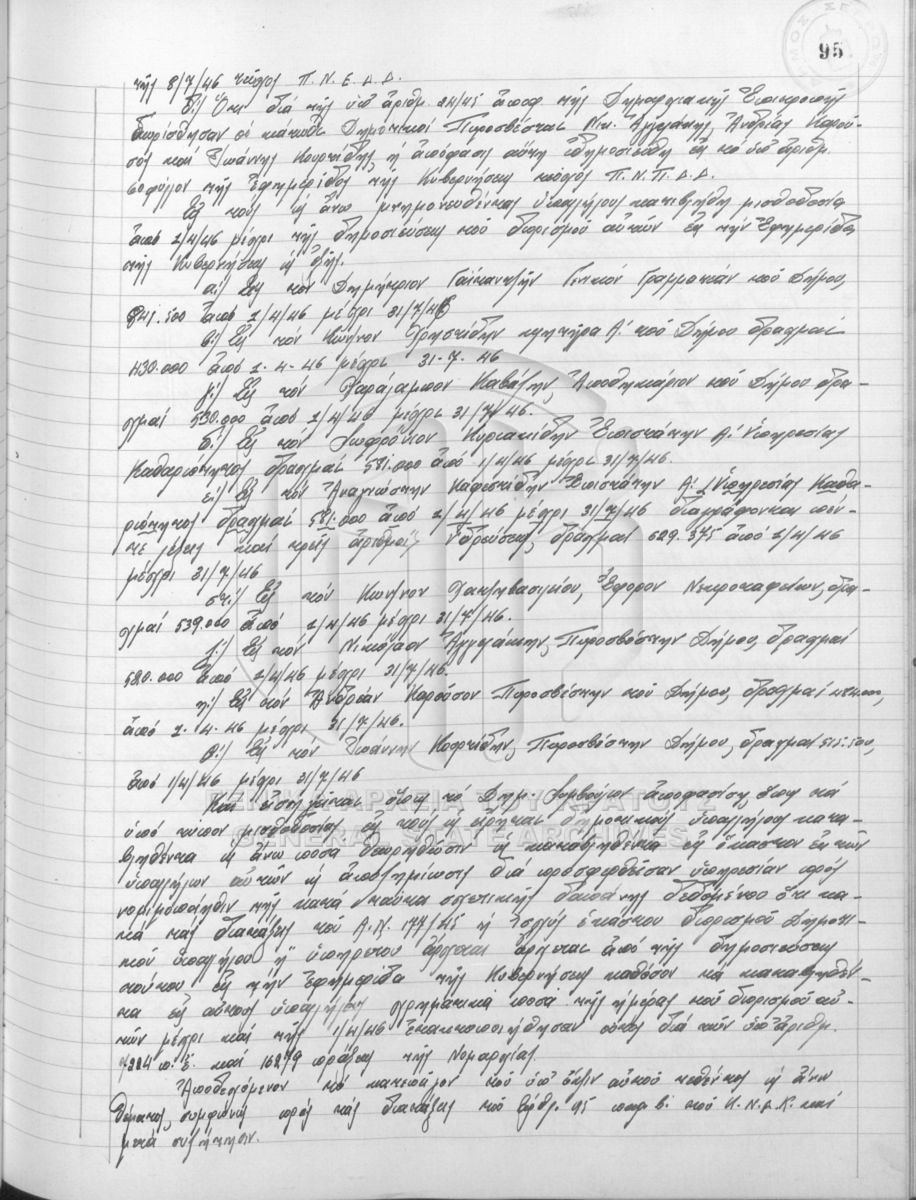 95
τῆς 8/7/46 τεῦχος Π.Ν.Ε.Δ.Δ.
β) Ὅτι διά τῆς ὑπ' ἀριθμ. 24/45 ἀποφ. τῆς Δημαρχιακῆς Ἐπιτροπῆς
διωρίσθησαν οἱ κάτωθι Δημοτικοί Πυροσβέσται Νικ. Ἀγγελάκης, Ἀνδρέας Καρού-
σος καί Ἰωάννης Κουρτίδης ἡ ἀπόφασις αὕτη ἐδημοσιεύθη εἰς τό ὑπ' ἀριθμ.
φύλλον τῆς Ἐφημερίδος τῆς Κυβερνήσεως τεῦχος Π.Ν.Π.Δ.Δ.
Εἰς τούς ὡς ἄνω μνημονευθέντας ὑπαλλήλους κατεβλήθη μισθοδοσία
ἀπό 1/4/46 μέχρι τῆς δημοσιεύσεως τοῦ διορισμοῦ αὐτῶν εἰς τήν Ἐφημερίδα
τῆς Κυβερνήσεως ὡς ἑξῆς.
α) Εἰς τόν Δημήτριον Γενικόν Γραμματέα τοῦ Δήμου,
841.500 ἀπό 1/4/46 μέχρι 31/7/46
β) Εἰς τόν Κων/νον Χρηστίδην κλητῆρα Α' τοῦ Δήμου δραχμαί
430.000 ἀπό 1-4-46 μέχρι 31-7-46
γ) Εἰς τόν Χαράλαμπον Καβάζην, Ἀποθηκάριον τοῦ Δήμου δρα-
χμαί 530.000 ἀπό 1/4/46 μέχρι 31/7/46.
δ) Εἰς τόν Σωφρόνιον Κυριακίδην Ἐπιστάτην Α' Ὑπηρεσίας
Καθαριότητος δραχμαί 581.000 ἀπό 1/4/46 μέχρι 31/7/46.
ε) Εἰς τόν Ἀναγνώστην Καφεστίδην Ἐπιστάτην Α' Ὑπηρεσίας Καθα-
ριότητος δραχμαί 581.000 ἀπό 1/4/46 μέχρι 31/7/46 διαγράφονται πέν-
τε λέξεις καί τρεῖς ἀριθμοί Ὑδρεύσεως, δραχμαί 629.375 ἀπό 1/4/46
μέχρι 31/7/46
στ) Εἰς τόν Κων/νον Χατζηβασιλείου, Ἔφορον Νεκροταφείων, δρα-
χμαί 539.000 ἀπό 1/4/46 μέχρι 31/7/46.
ζ) Εἰς τόν Νικόλαον Ἀγγελάκην, Πυροσβέστην Δήμου, δραχμαί
520.000 ἀπό 1/4/46 μέχρι 31/7/46.
η) Εἰς τόν Ἀνδρέαν Καροῦσον Πυροσβέστην τοῦ Δήμου, δραχμαί
ἀπό 1-4-46 μέχρι 31/7/46.
θ) Εἰς τόν Ἰωάννην Κουρτίδην, Πυροσβέστην Δήμου, δραχμαί 515.500,
ἀπό 1/4/46 μέχρι 31/7/46
Καί εἰσηγεῖται ὅπως τό Δημ. Συμβούλιον ἀποφασίσῃ ὅπως τά
ὑπό τύπον μισθοδοσίας εἰς τούς ὡς εἴρηται δημοτικούς ὑπαλλήλους κατα-
βληθέντα ὡς ἄνω ποσά θεωρηθῶσιν ὡς καταβληθέντα εἰς ἕκαστον ἐκ τῶν
ὑπαλλήλων αὐτῶν ὡς ἀποζημίωσις διά προσφερθεῖσαν ὑπηρεσίαν πρός
νομιμοποίησιν τῆς κατά ταῦτα σχετικῆς δαπάνης δεδομένου ὅτι κα-
τά τάς διατάξεις τοῦ Α.Ν. 174/45 ἡ ἰσχύς ἑκάστου διορισμοῦ Δημοτι-
κοῦ ὑπαλλήλου ἤ ὑπηρέτου ἄρχεται ἀπό τῆς δημοσιεύσεως
τούτου εἰς τήν Ἐφημερίδα τῆς Κυβερνήσεως καθόσον τά καταβληθέν-
τα εἰς αὐτούς ὑπαλλήλους χρηματικά ποσά τῆς ἡμέρας τοῦ διορισμοῦ αὐ-
τῶν μέχρι καί τῆς 1/4/46 ἐτακτοποιήθησαν διά τῶν ὑπ' ἀριθμ.
7324 π.ἔ. καί 16279 πράξεις τῆς Νομαρχίας.
Ἀποδεχόμενον τό κατεπεῖγον τοῦ ὑπ' ὄψιν αὐτοῦ τεθέντος ὡς ἄνω
θέματος συμφώνως πρός τάς διατάξεις τοῦ ἄρθρ. 95 παρ. β. τοῦ Κ.Ν.Δ.Κ. καί
μετά συζήτησιν.
ΓΕΝΙΚΑ ΑΡΧΕΙΑ ΤΟΥ ΚΡΑΤΟΥΣ
GENERAL STATE ARCHIVES